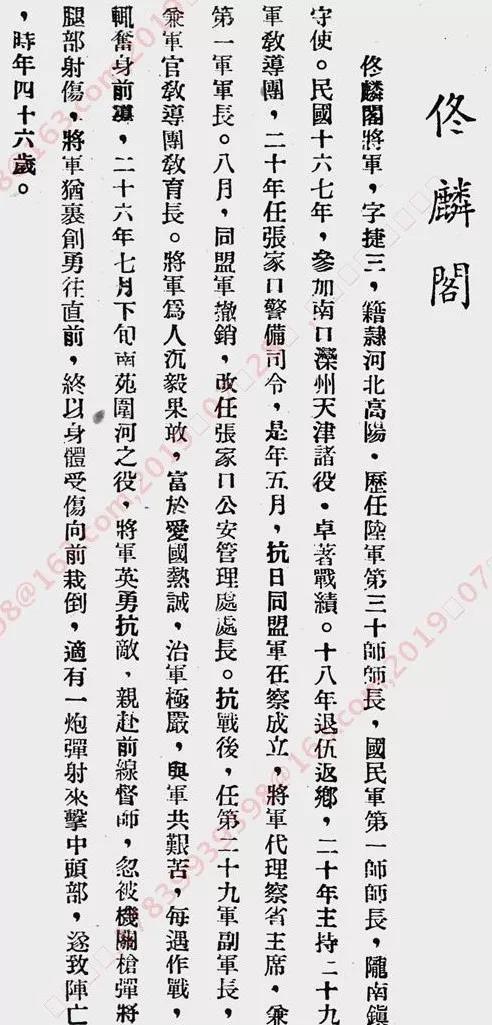 佟麟閣
佟麟閣將軍，字捷三，籍隷河北高陽．歷任陸軍第三十師師長，國民軍第一師師長，隴南鎮
守使。民國十六七年，參加南口灤州天津諸役．卓著戰績。十八年退伍返鄉，二十年主持二十九
軍敎導團，二十年任張家口警備司令，是年五月，抗日同盟軍在察成立，將軍代理察省主席．兼
第一軍軍長。八月，同盟軍撤銷，改任張家口公安管理處處長。抗戰後，任第二十九軍副軍長，
兼軍官敎導團敎育長。將軍爲人沉毅果敢，富於愛國熱誠，治軍極嚴，與軍共艱苦，每遇作戰，
輒奮身前，二十六年七月下旬南苑圍河之役，將軍英勇抗敵．親赴前線督師，忽被機關槍彈將
腿部射傷，將軍猶裹創勇往直前，終以身體受傷向前栽倒，適有一炮彈射來擊中頭部，遂致陣亡
，時年四十六歲。